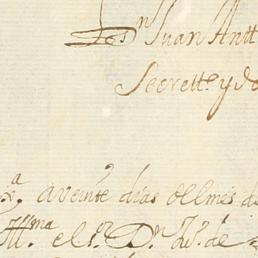 Dn Juan Antt
Secrett.o y
a veinte dias del mes de
Ill.ma el S.r D.n de